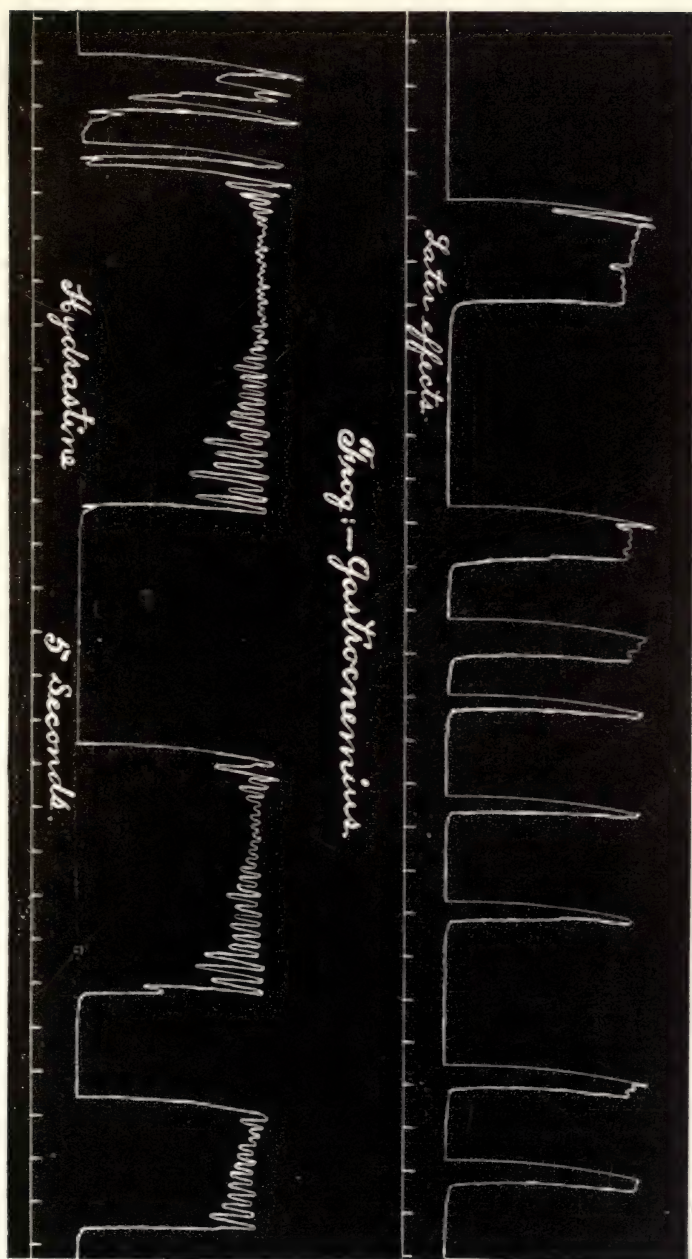 Later effects.
Frog:—Gastrocnemius.
Hydrastine
5 Seconds.